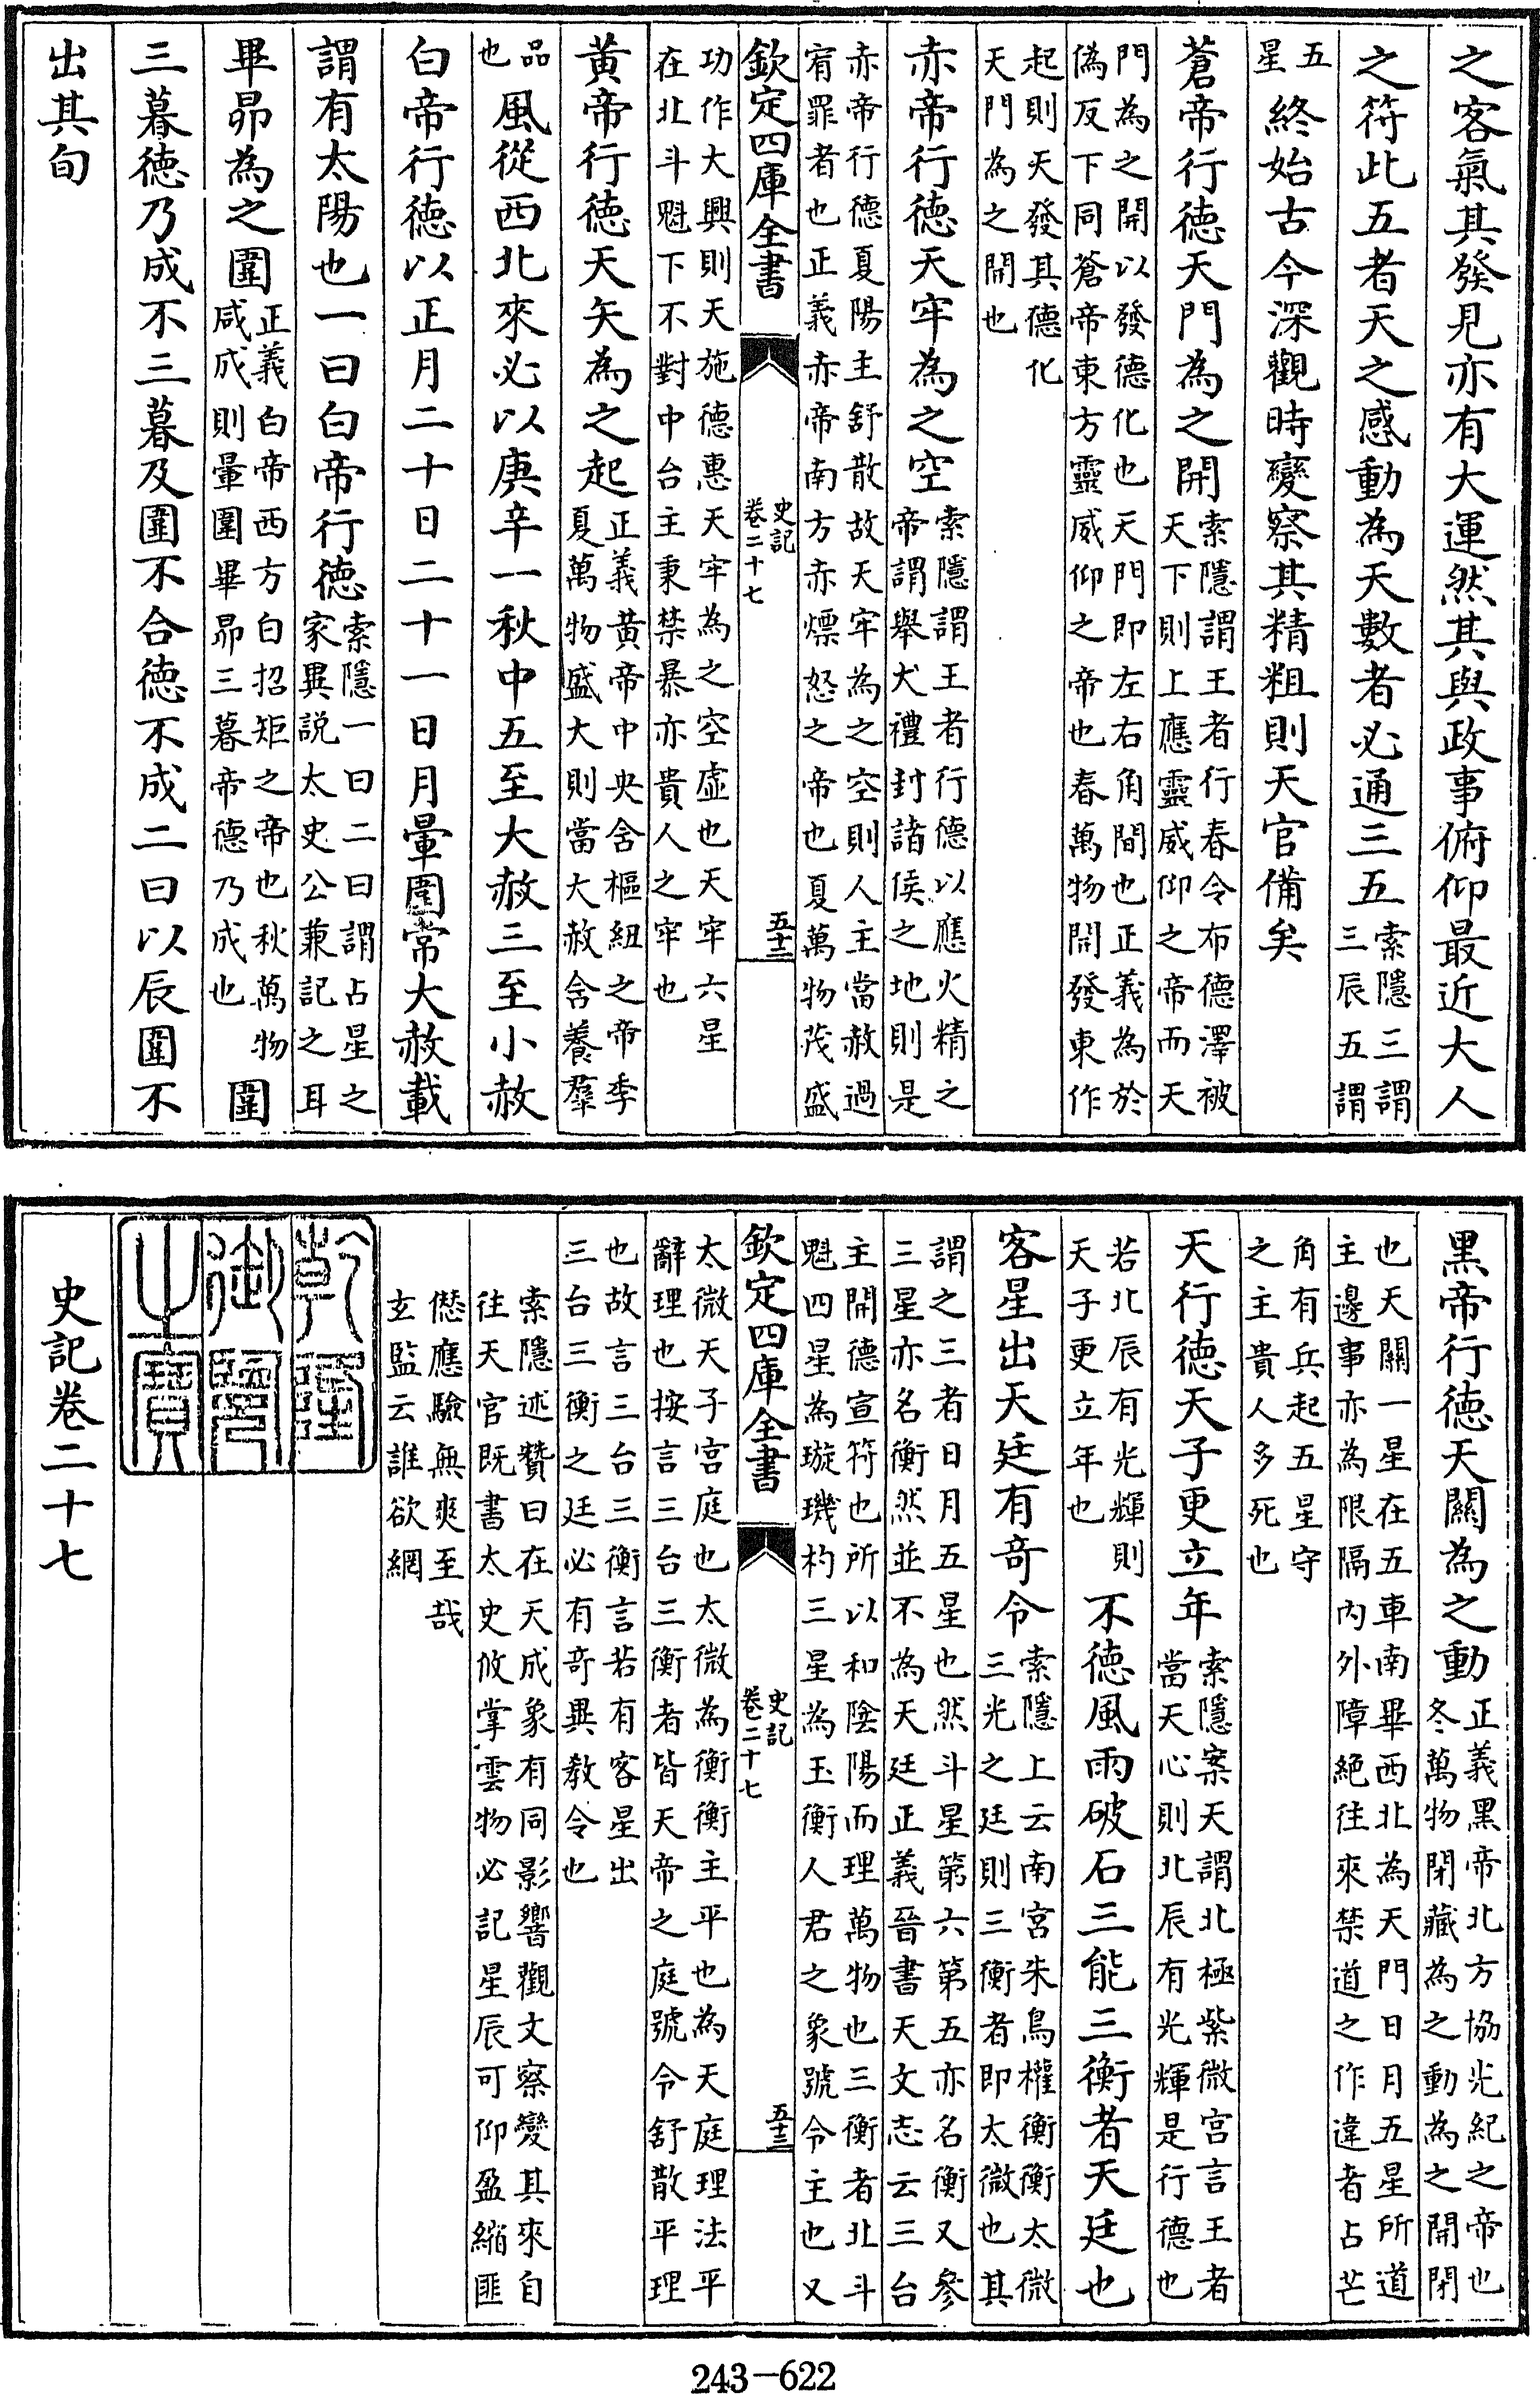 之客氣其發見亦有大運然其與政事俯仰最近大人
之符此五者天之感動為天數者必通三五索隱三謂三辰五謂
五星終始古今深觀時變察其精粗則天官備矣
蒼帝行徳天門為之開索隱謂王者行春令布德澤被天下則上應靈威仰之帝而天
門為之開以發德化也天門即左右角間也正義為於偽反下同蒼帝東方靈威仰之帝也春萬物開發東作
起則天發其德化天門為之開也
赤帝行徳天牢為之空索隱謂王者行德以應火精之帝謂舉大禮封諸侯之地則是
赤帝行德夏陽主舒散故天牢為之空則人主當赦過宥罪者也正義赤帝南方赤熛怒之帝也夏萬物茂盛
欽定四庫全書 史記卷二十七 五十三
功作大興則天施德惠天牢為之空虚也天牢六星在北斗魁下不對中台主秉禁暴亦貴人之牢也
黄帝行徳天矢為之起正義黄帝中央含樞紐之帝季夏萬物盛大則當大赦含養羣
品也風從西北來必以庚辛一秋中五至大赦三至小赦
白帝行徳以正月二十日二十一日月暈圍常大赦載
謂有太陽也一曰白帝行徳索隱一曰二曰謂占星之家異説太史公兼記之耳
畢昴為之圍正義白帝西方白招矩之帝也秋萬物咸成則暈圍畢昴三暮帝德乃成也圍
三暮徳乃成不三暮及圍不合徳不成二曰以辰圍不
出其旬
黑帝行徳天關為之動正義黑帝北方協光紀之帝也冬萬物閉藏為之動為之開閉
也天關一星在五車南畢西北為天門日月五星所道主邊事亦為限隔內外障絶往來禁道之作違者占芒
角有兵起五星守之主貴人多死也
天行徳天子更立年索隱案天謂北極紫微宫言王者當天心則北辰有光輝是行德也
若北辰有光輝則天子更立年也不徳風雨破石三能三衡者天廷也
客星出天廷有奇令索隱上云南宫朱鳥權衡衡太微三光之廷則三衡者即太微也其
謂之三者日月五星也然斗星第六第五亦名衡又參三星亦名衡然並不為天廷正義晉書天文志云三台
主開德宣符也所以和陰陽而理萬物也三衡者北斗魁四星為璇璣杓三星為玉衡人君之象號令主也又
欽定四庫全書 史記卷二十七 五十三
太微天子宫庭也太微為衡衡主平也為天庭理法平辭理也按言三台三衡者皆天帝之庭號令舒散平理
也故言三台三衡言若有客星出三台三衡之廷必有奇異教令也
索隱述贊曰在天成象有同影響觀文察變其來自往天官既書太史攸掌雲物必記星辰可仰盈縮匪
僽應驗無爽至哉玄監云誰欲網
乾隆
御覽
之寶
史記卷二十七
243-622